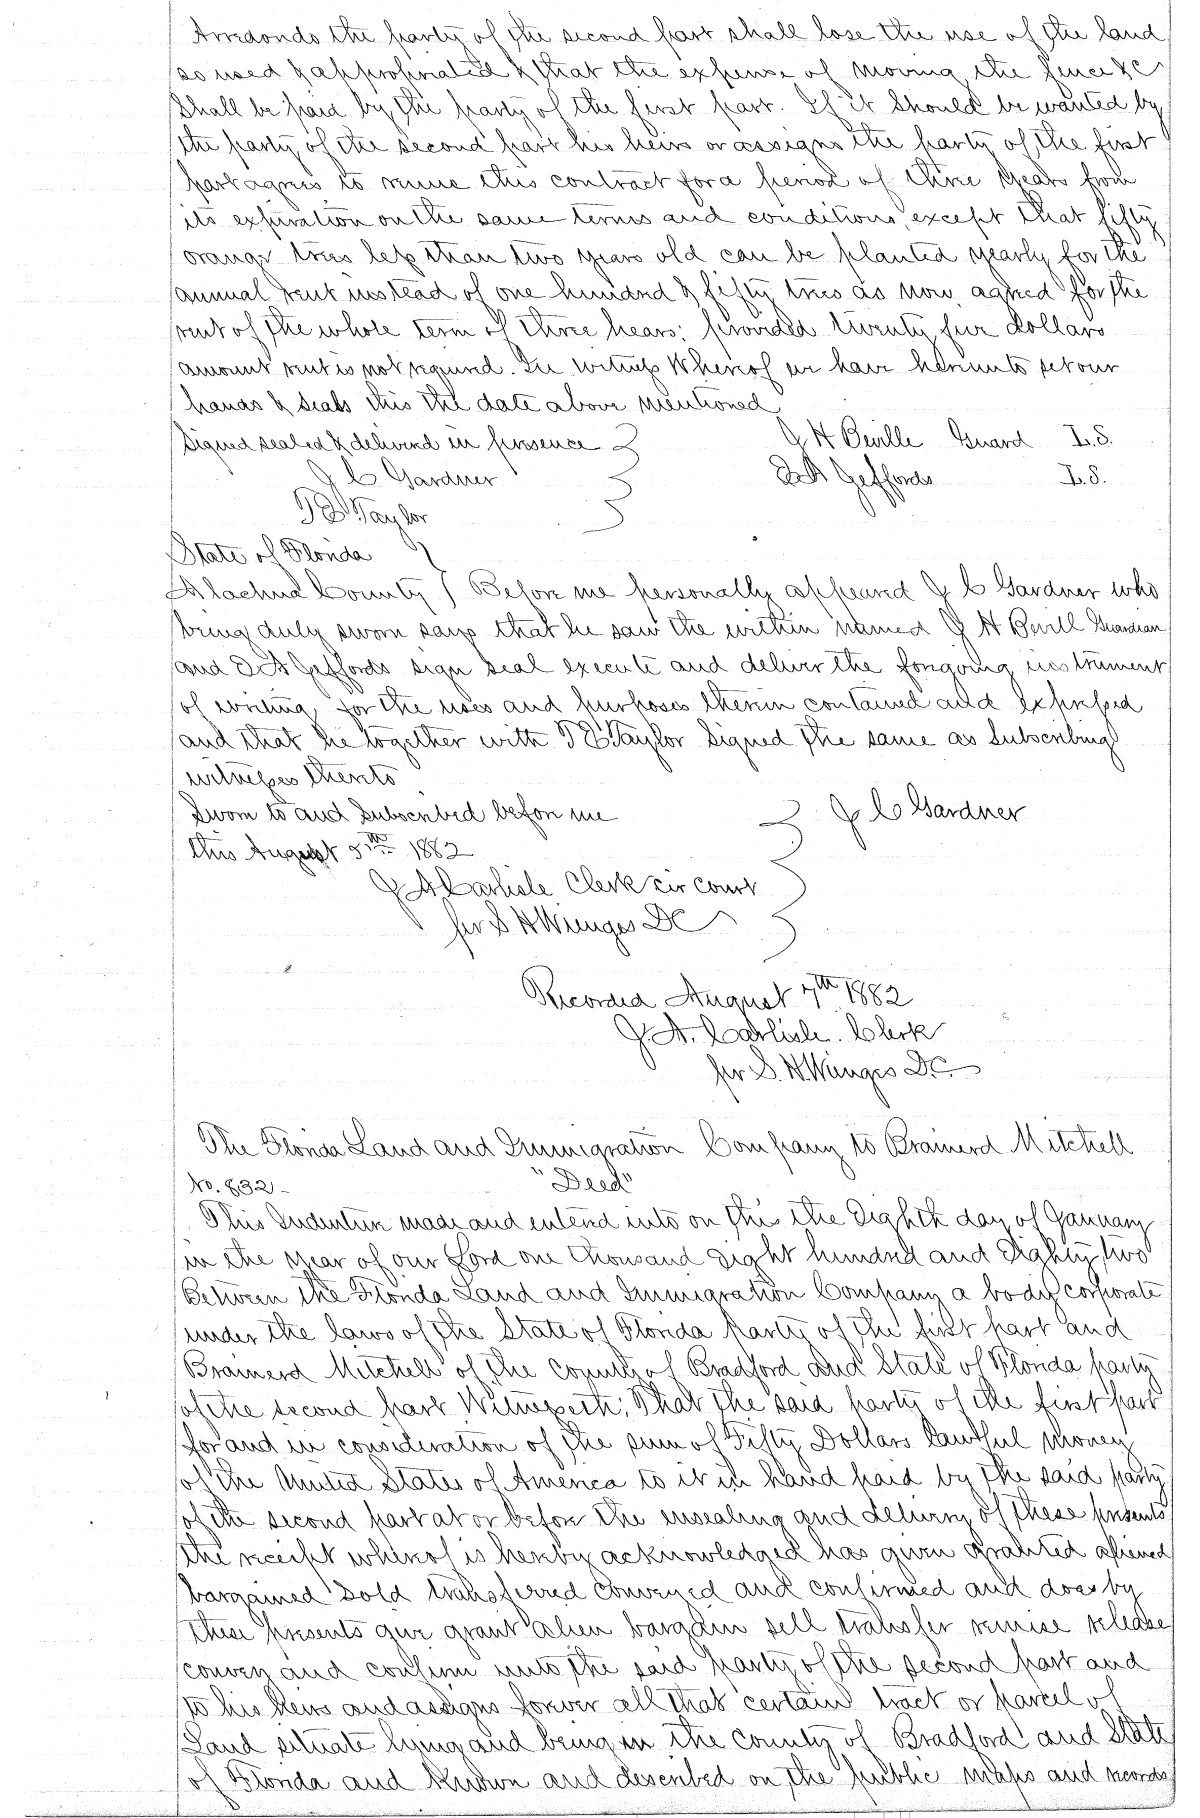 Arredondo the party of the second part shall lose the use of the land
so used & appropriated & that the expense of moving the fence &c
shall be paid by the party of the first part. If it should be wanted by
the party of the second part his heirs or assigns the party of the first
part agrees to renew this contract for a period of three years from
its expiration on the same terms and conditions, except that fifty
orange trees less than two years old can be planted yearly for the
annual rent instead of one hundred & fifty trees as now agreed for the
rent of the whole term of three hears; provided twenty five dollars
amount rent is not required. In witness Whereof we have hereunto set our
hands & seals this the date above mentioned
Signed sealed & delivered in presence J H Beville Guard L.S.
J C Gardner Jeffords L.S.
T E Taylor
State of Florida
Alachua County } Before me personally appeared J C Gardner who
being duly sworn says that he saw the within named J H Bevill Guardian
and Jeffords sign seal execute and deliver the foregoing instrument
of writing, for the uses and purposes therein contained and expressed
and that he together with T E Taylor signed the same as subscribing
witnesses thereto
Sworn to and subscribed before me J C Gardner
this August 5th 1882
J A Carlisle Clerk cir court
per S H Wienges DC
Recorded August 7th 1882
J. A. Carlisle. Clerk
per S. H. Wienges D.C.
The Florida Land and Immigration Company to Brainerd Mitchell
No. 832- "Deed"
This Indenture made and entered into on this the Eighth day of January
in the year of our Lord one thousand Eight hundred and Eighty two
Between the Florida Land and Immigration Company a body corporate
under the laws of the State of Florida party of the first part and
Brainerd Mitchell of the County of Bradford and State of Florida party
of the second part Witnesseth, That the said party of the first part
for and in consideration of the sum of Fifty Dollars lawful money
of the United States of America to it in hand paid by the said party
of the second part at or before the ensealing and delivery of these presents
the receipt whereof is hereby acknowledged has given granted aliened
bargained sold transferred conveyed and confirmed and does by
these presents give grant alien bargain sell transfer remise release
convey and confirm unto the said party of the second part and
to his heirs and assigns forever all that certain tract or parcel of
Land situate lying and being in the county of Bradford and State
of Florida and known and described on the public maps and records